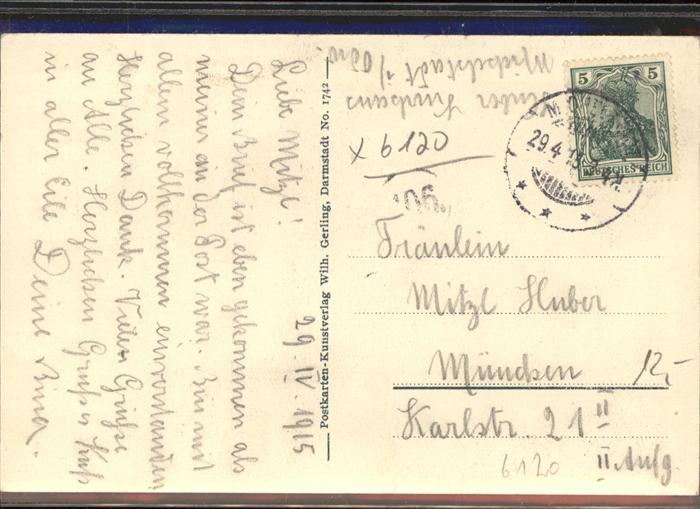 29. IV. 1915
Liebe Mitzl!
Dein Brief ist eben gekommen als
meiner an der Post war. Bin mit
allem vollkommen einverstanden
Herzlichen Dank. Viele Grüße
an Alle. Herzlichen Gruß u Kuß
in aller Eile Deine
Postkarten-Kunstverlag Wilh. Gerling, Darmstadt No. 1742
Michelstadt i/Odw.
x 6120
5 5
DEUTSCHES REICH
29.4.15
Fräulein
Mitzl Huber
München
12,-
Karlstr. 21 II
II Aufg.
6120